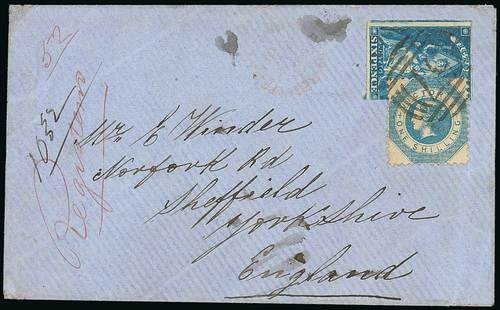 52
1052
Registered
SIX PENCE
VICTORIA
ONE SHILLING
Mr E Winder
Norfork Rd
Sheffield
Yorkshire
England